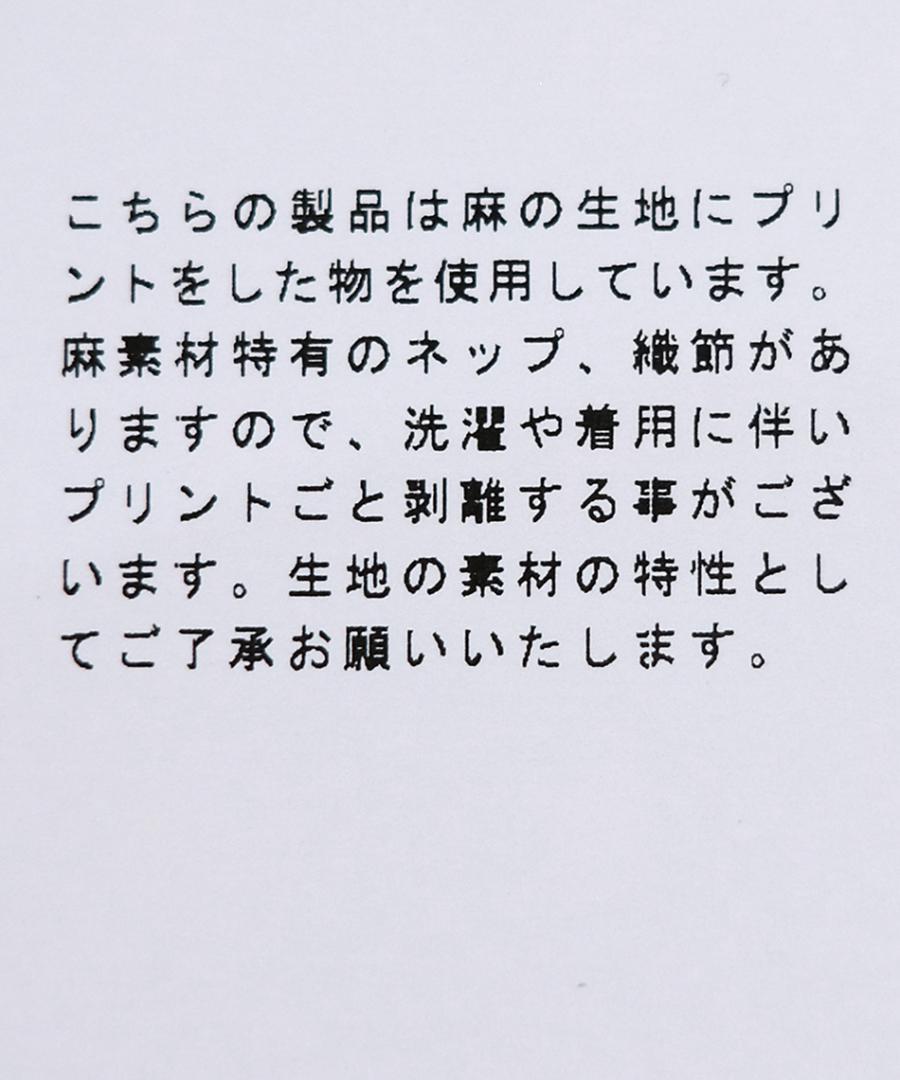 こちらの製品は麻の生地にプリ
ントをした物を使用しています。
麻素材特有のネップ、織節があ
りますので、洗濯や着用に伴い
プリントごと剥離する事がござ
います。生地の素材の特性とし
てご了承お願いいたします。